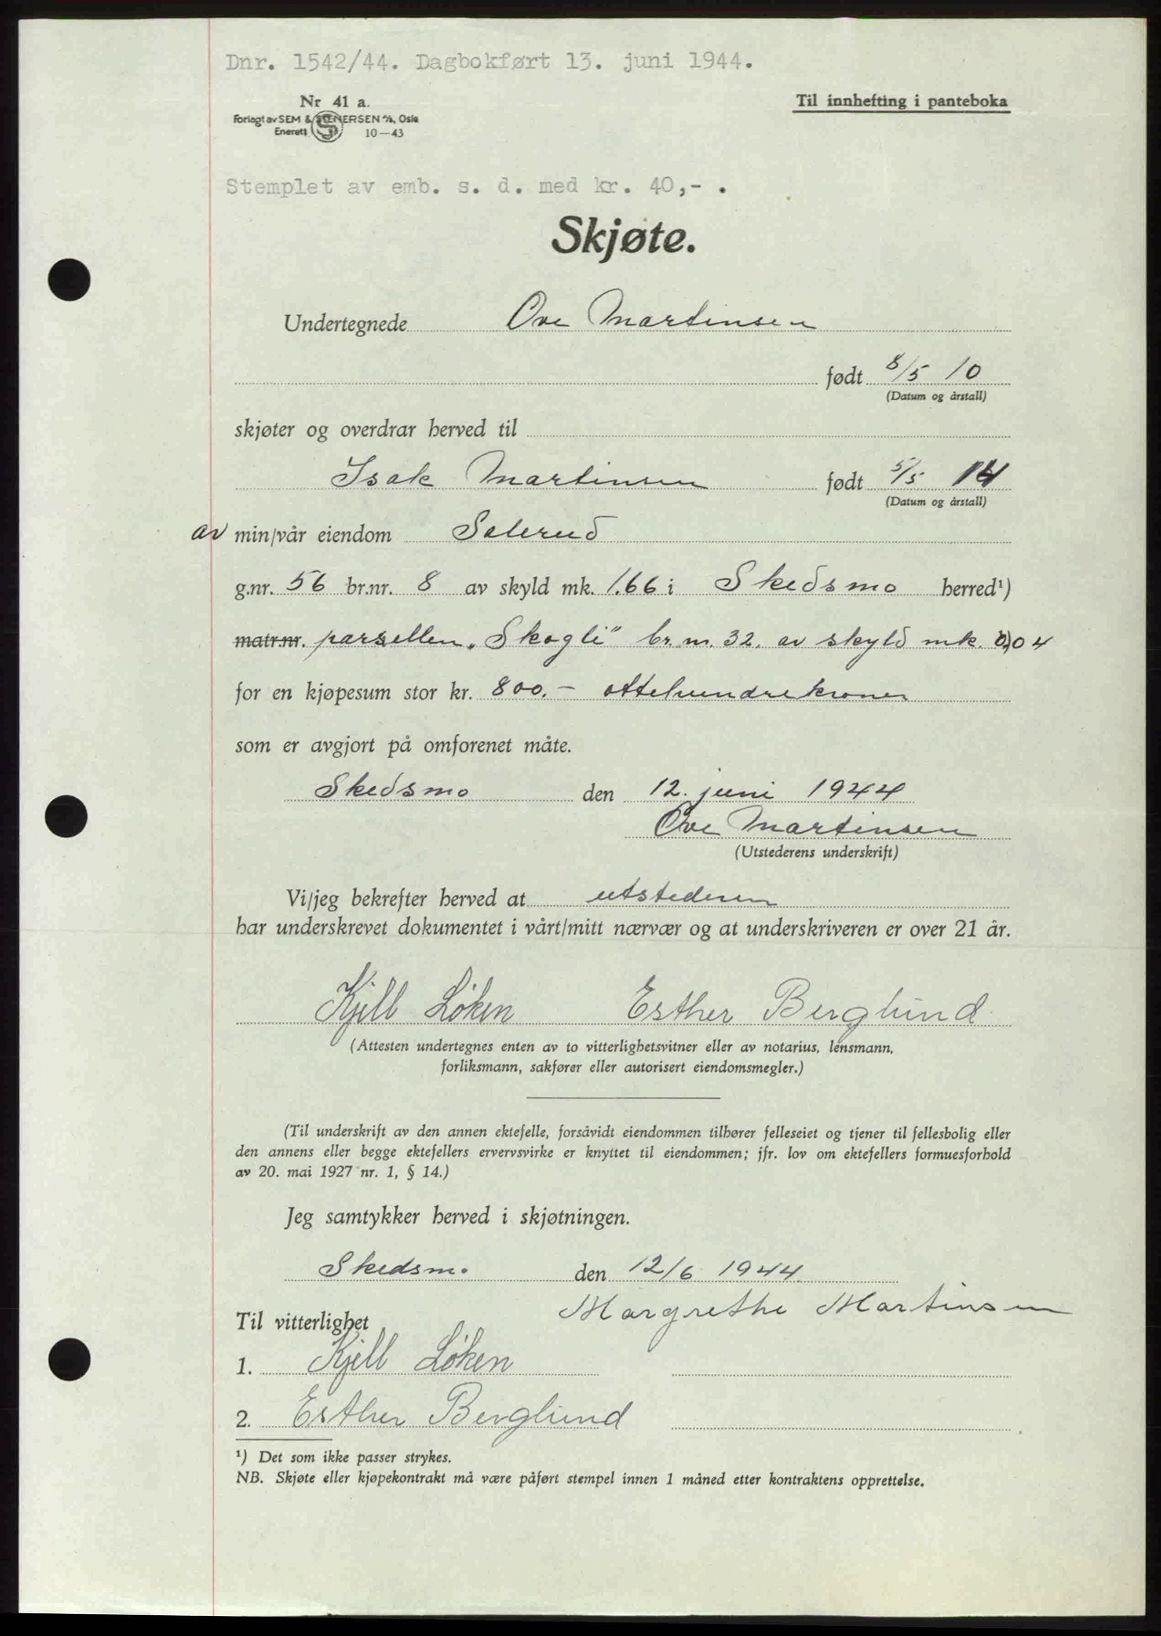 Dnr. 1542/44. Dagbokført 13. juni 1944.
Nr 41 a.
Til innhefting i panteboka
Forlagt av SEM & STENERSEN A/S, Oslo
Enerett 10—43
Stemplet av emb. s. d. med kr. 40,- .
Skjøte.
Undertegnede Ove Martinsen
født 8/5 10
(Datum og årstall)
skjøter og overdrar herved til
Isak Martinsen født 5/5 14
(Datum og årstall)
av min/vår eiendom Solerud
g.nr. 56 br.nr. 8 av skyld mk. 1.66 i Skedsmo herred¹)
matr.nr. parsellen „Skogli" br. nr. 32. av skyld mk. 0,04
for en kjøpesum stor kr. 800.- ottehundrekroner
som er avgjort på omforenet måte.
Skedsmo den 12. juni 1944
Ove Martinsen
(Utstederens underskrift)
Vi/jeg bekrefter herved at utstederen
har underskrevet dokumentet i vårt/mitt nærvær og at underskriveren er over 21 år.
Kjell Løken Esther Berglund
(Attesten undertegnes enten av to vitterlighetsvitner eller av notarius, lensmann,
forliksmann, sakfører eller autorisert eiendomsmegler.)
(Til underskrift av den annen ektefelle, forsåvidt eiendommen tilhører felleseiet og tjener til fellesbolig eller
den annens eller begge ektefellers ervervsvirke er knyttet til eiendommen; jfr. lov om ektefellers formuesforhold
av 20. mai 1927 nr. 1, § 14.)
Jeg samtykker herved i skjøtningen.
Skedsmo den 12/6 1944
Margrethe Martinsen
Til vitterlighet
1. Kjell Løken
2. Esther Berglund
¹) Det som ikke passer strykes.
NB. Skjøte eller kjøpekontrakt må være påført stempel innen 1 måned etter kontraktens opprettelse.